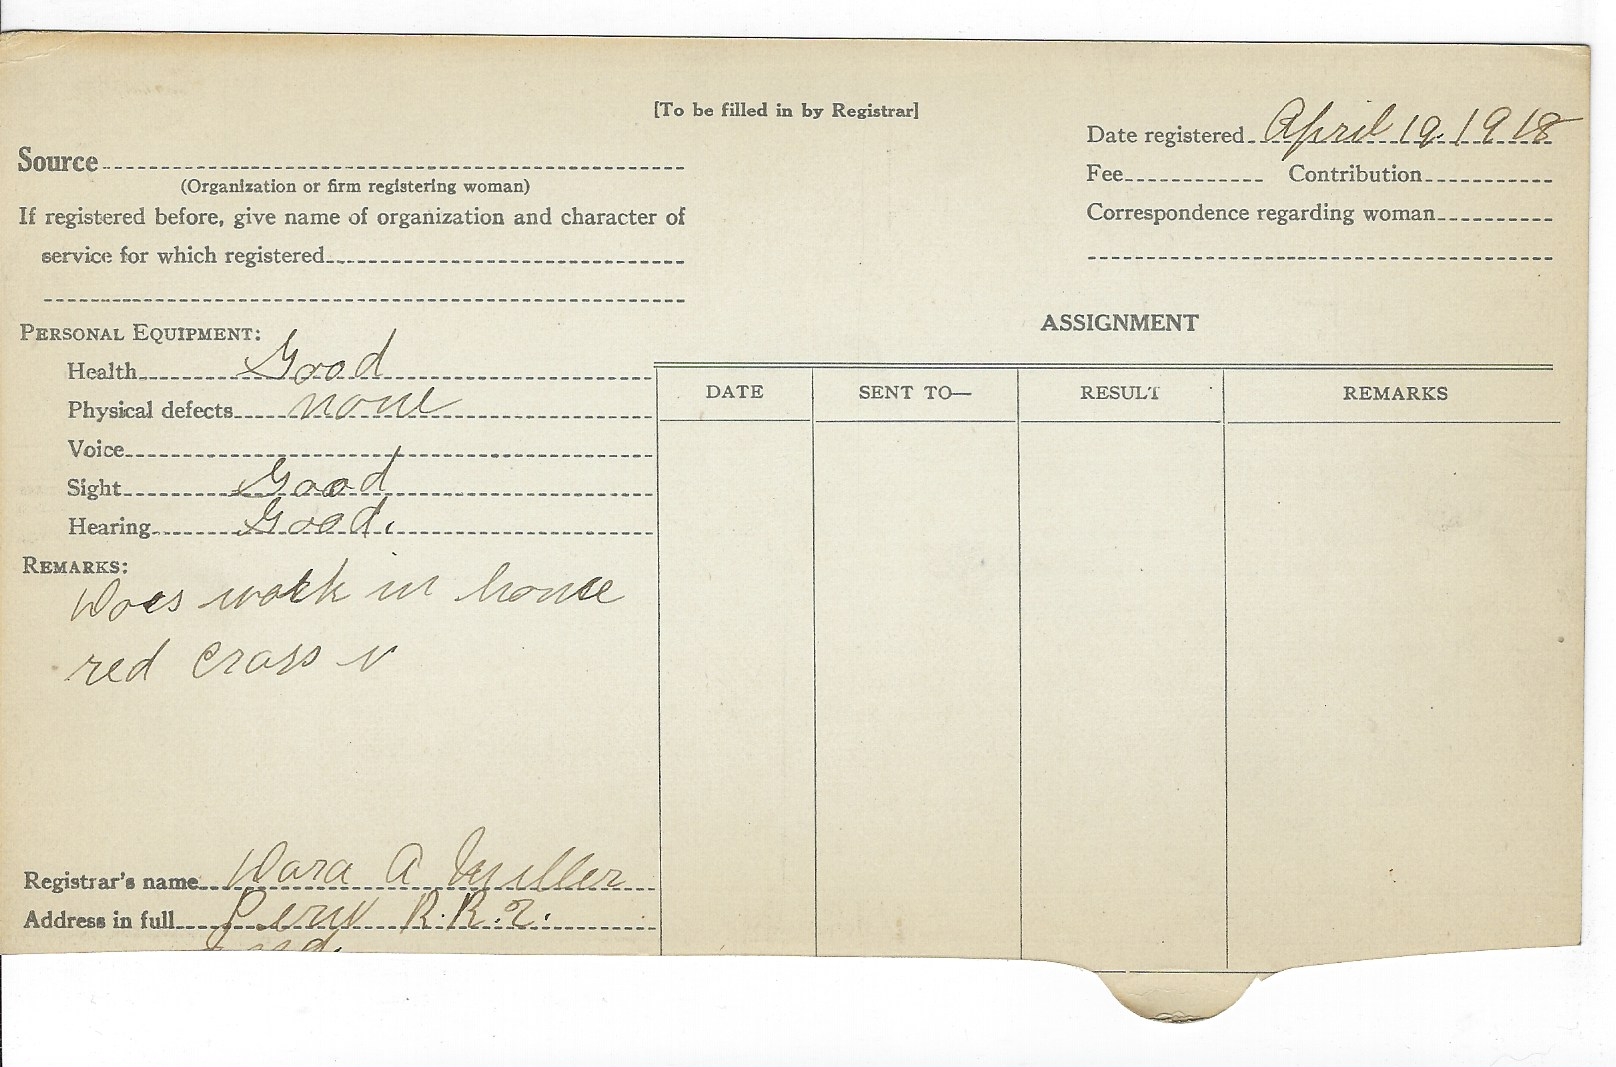 [To be filled in by Registrar]
Date registered April 19. 1918
Source
(Organization or firm registering woman)
Fee Contribution
If registered before, give name of organization and character of
Correspondence regarding woman
service for which registered
PERSONAL EQUIPMENT:
ASSIGNMENT
Health Good
DATE SENT TO— RESULT REMARKS
Physical defects none
Voice
Sight Good
Hearing Good.
REMARKS:
Does work in home
red cross
Registrar's name Dora A Miller
Address in full Peru R.R.2.
Ind.